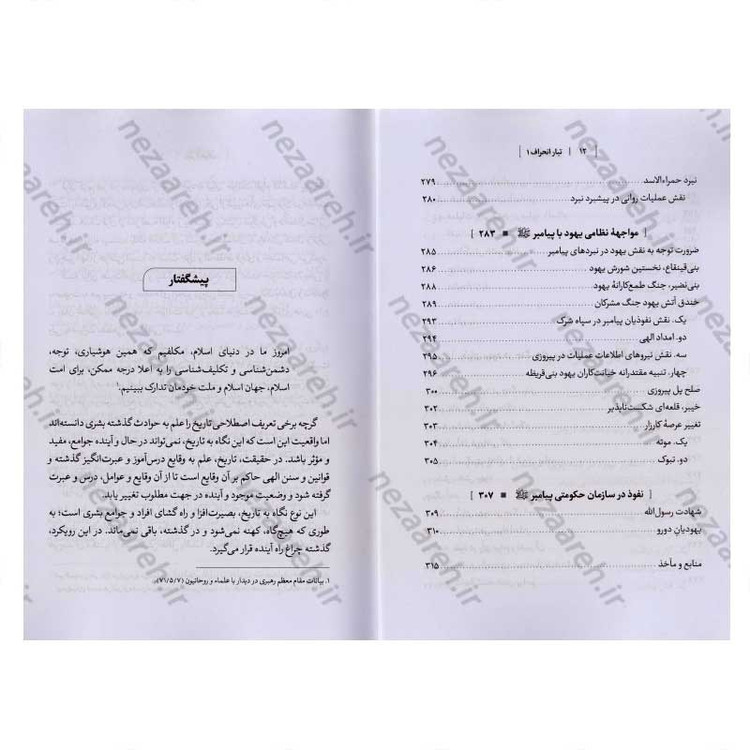 ۱۲ | تبار انحراف ۱ |
نبرد حمراءالاسد ۲۷۹
نقش عملیات روانی در پیشبرد نبرد ۲۸۰
[ مواجههٔ نظامی یهود با پیامبر ﷺ ■ ۲۸۳ ]
ضرورت توجه به نقش یهود در نبردهای پیامبر ۲۸۵
بنی‌قینقاع، نخستین شورش یهود ۲۸۶
بنی‌نضیر، جنگ طمع‌کارانهٔ یهود ۲۸۸
خندق آتش یهود جنگ مشرکان ۲۸۹
یک. نقش نفوذیان پیامبر در سپاه شرک ۲۹۳
دو. امداد الهی ۲۹۴
سه. نقش نیروهای اطلاعات عملیات در پیروزی ۲۹۵
چهار. تنبیه مقتدرانه خیانت‌کاران یهود بنی‌قریظه ۲۹۶
صلح پل پیروزی ۳۰۰
خیبر، قلعه‌ای شکست‌ناپذیر ۳۰۲
تغییر عرصهٔ کارزار ۳۰۳
یک. موته ۳۰۴
دو. تبوک ۳۰۵
[ نفوذ در سازمان حکومتی پیامبر ﷺ ■ ۳۰۷ ]
شهادت رسول‌الله ۳۰۹
یهودیان دورو ۳۱۰
منابع و مآخذ ۳۱۵
پیشگفتار
امروز ما در دنیای اسلام، مکلفیم که همین هوشیاری، توجه،
دشمن‌شناسی و تکلیف‌شناسی را به اعلا درجه ممکن، برای امت
اسلام، جهان اسلام و ملت خودمان تدارک ببینیم.¹
گرچه برخی تعریف اصطلاحی تاریخ را علم به حوادث گذشته بشری دانسته‌اند
اما واقعیت این است که این نگاه به تاریخ، نمی‌تواند در حال و آینده جوامع، مفید
و مؤثر باشد. در حقیقت، تاریخ، علم به وقایع درس‌آموز و عبرت‌انگیز گذشته و
قوانین و سنن الهی حاکم بر آن وقایع است تا از آن وقایع و عوامل، درس و عبرت
گرفته شود و وضعیت موجود و آینده در جهت مطلوب تغییر یابد.
این نوع نگاه به تاریخ، بصیرت‌افزا و راه گشای افراد و جوامع بشری است؛ به
طوری که هیچ‌گاه، کهنه نمی‌شود و در گذشته، باقی نمی‌ماند. در این رویکرد،
گذشته چراغ راه آینده قرار می‌گیرد.
۱. بیانات مقام معظم رهبری در دیدار با علماء و روحانیون (۷۱/۵/۷).
nezaareh.ir